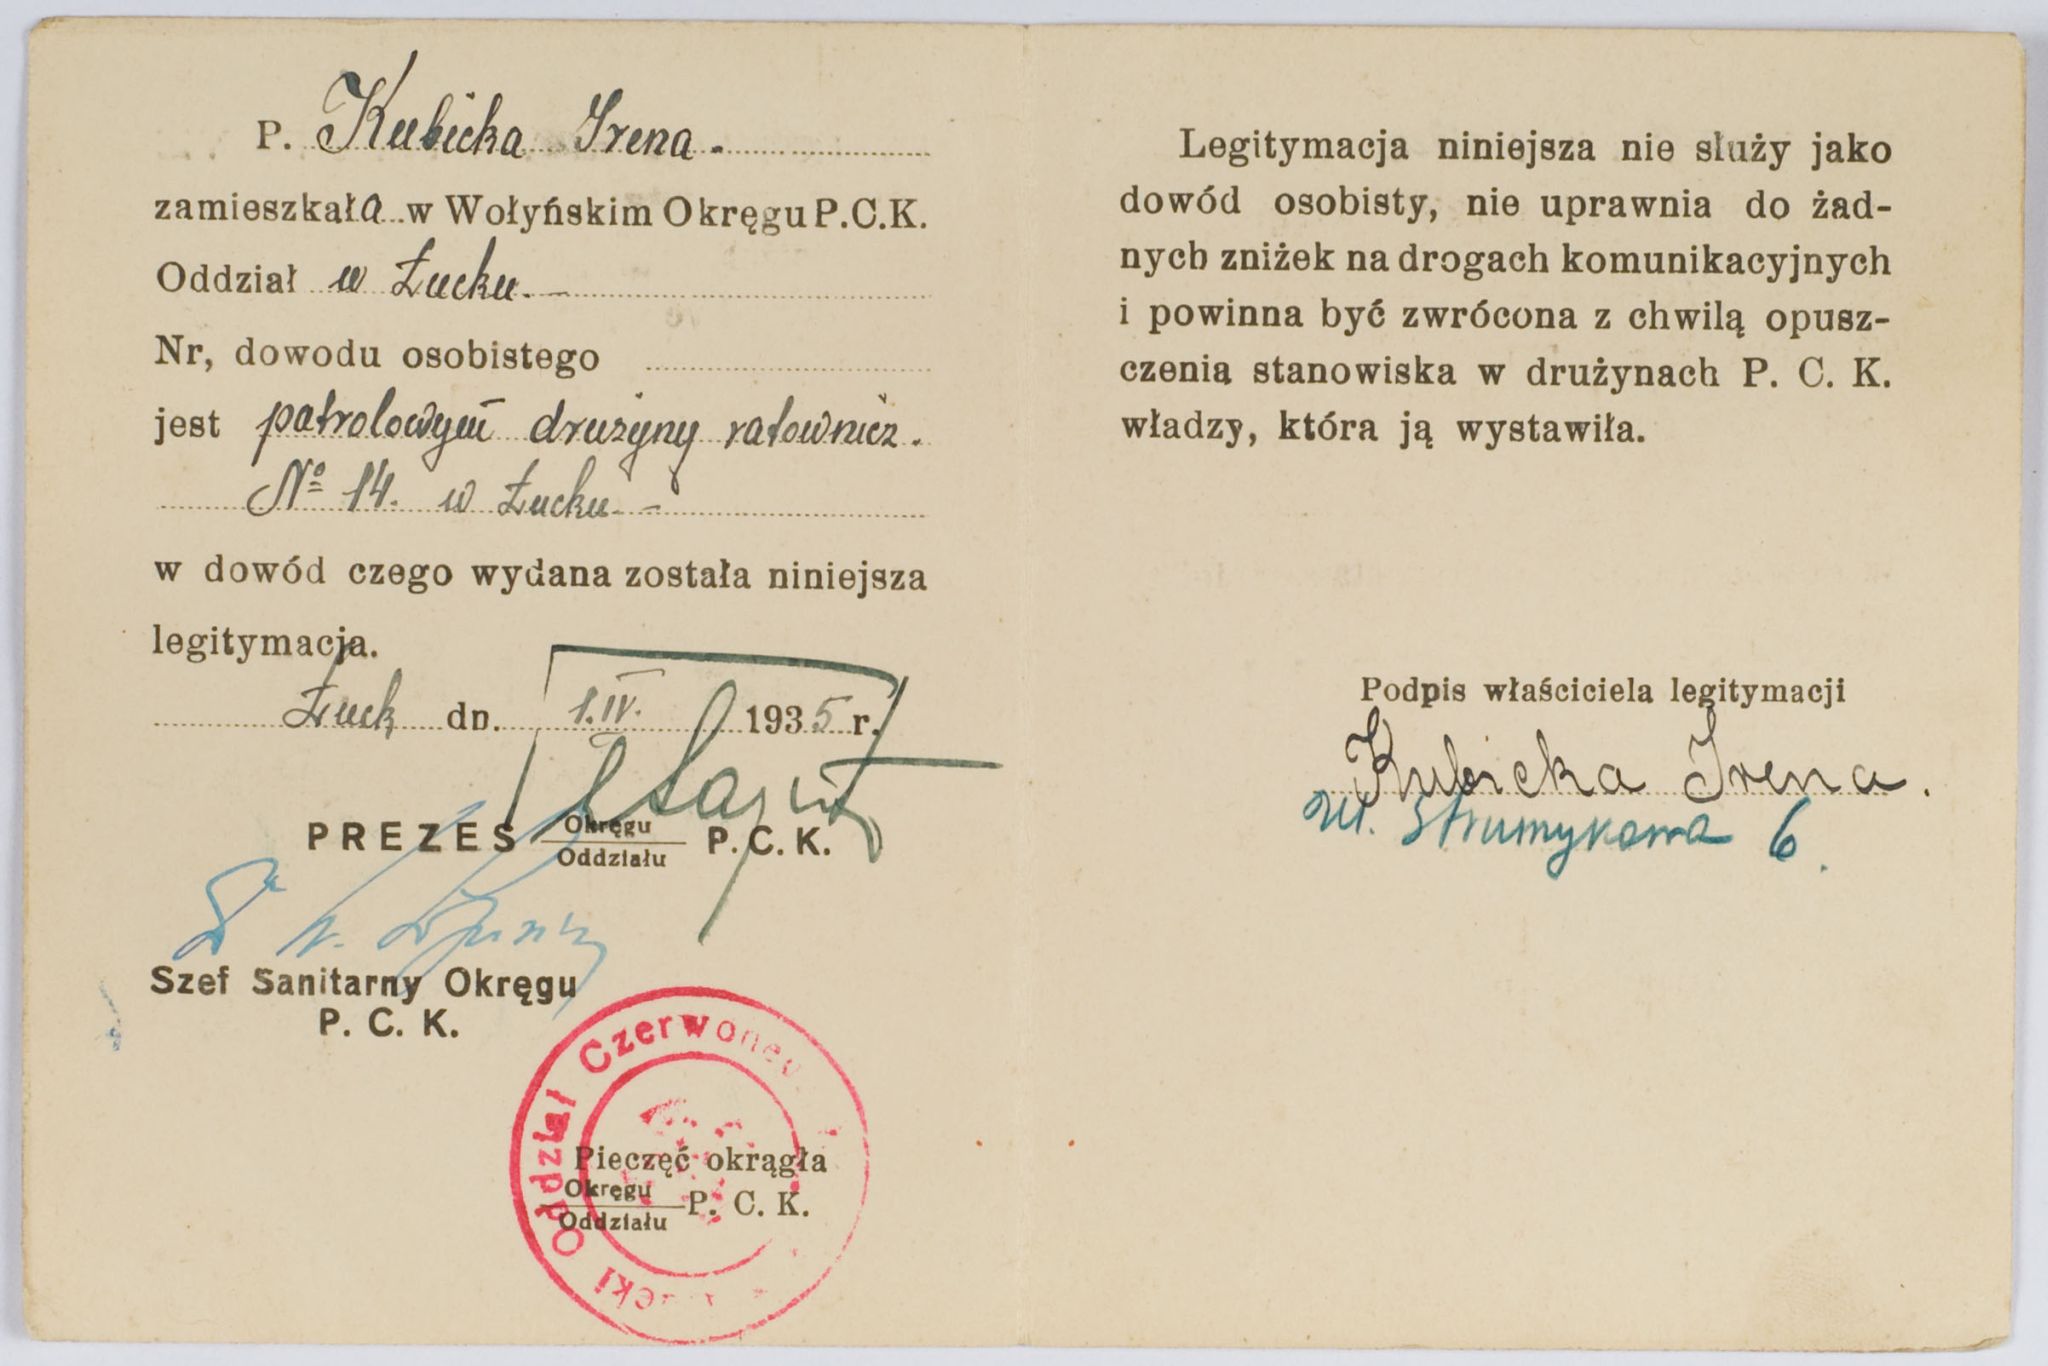 P. Kubicka Irena.
zamieszkała w Wołyńskim Okręgu P.C.K.
Oddział w Łucku.
Nr, dowodu osobistego
jest patrolowym drużyny ratownicz.
№ 14. w Łucku
w dowód czego wydana została niniejsza
legitymacja.
Łuck dn. 1.IV. 1935 r.
PREZES Okręgu P. C. K.
Oddziału
Szef Sanitarny Okręgu
P. C. K.
Oddział Czerwone
Pieczęć okrągła
Okręgu P. C. K.
Oddziału
Legitymacja niniejsza nie służy jako
dowód osobisty, nie uprawnia do żad-
nych zniżek na drogach komunikacyjnych
i powinna być zwrócona z chwilą opusz-
czenia stanowiska w drużynach P. C. K.
władzy, która ją wystawiła.
Podpis właściciela legitymacji
Kubicka Irena.
ul. Strumykowa 6.